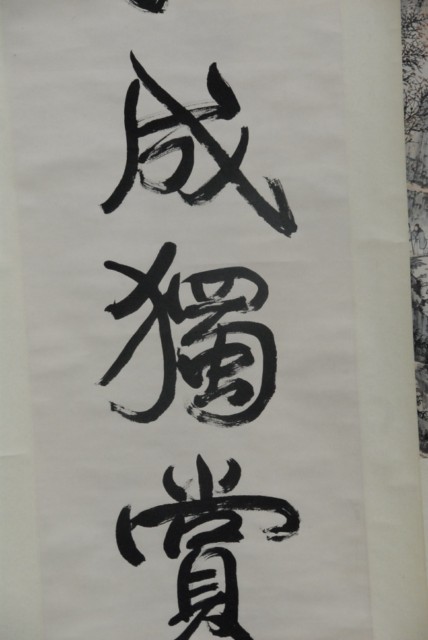 成獨賞